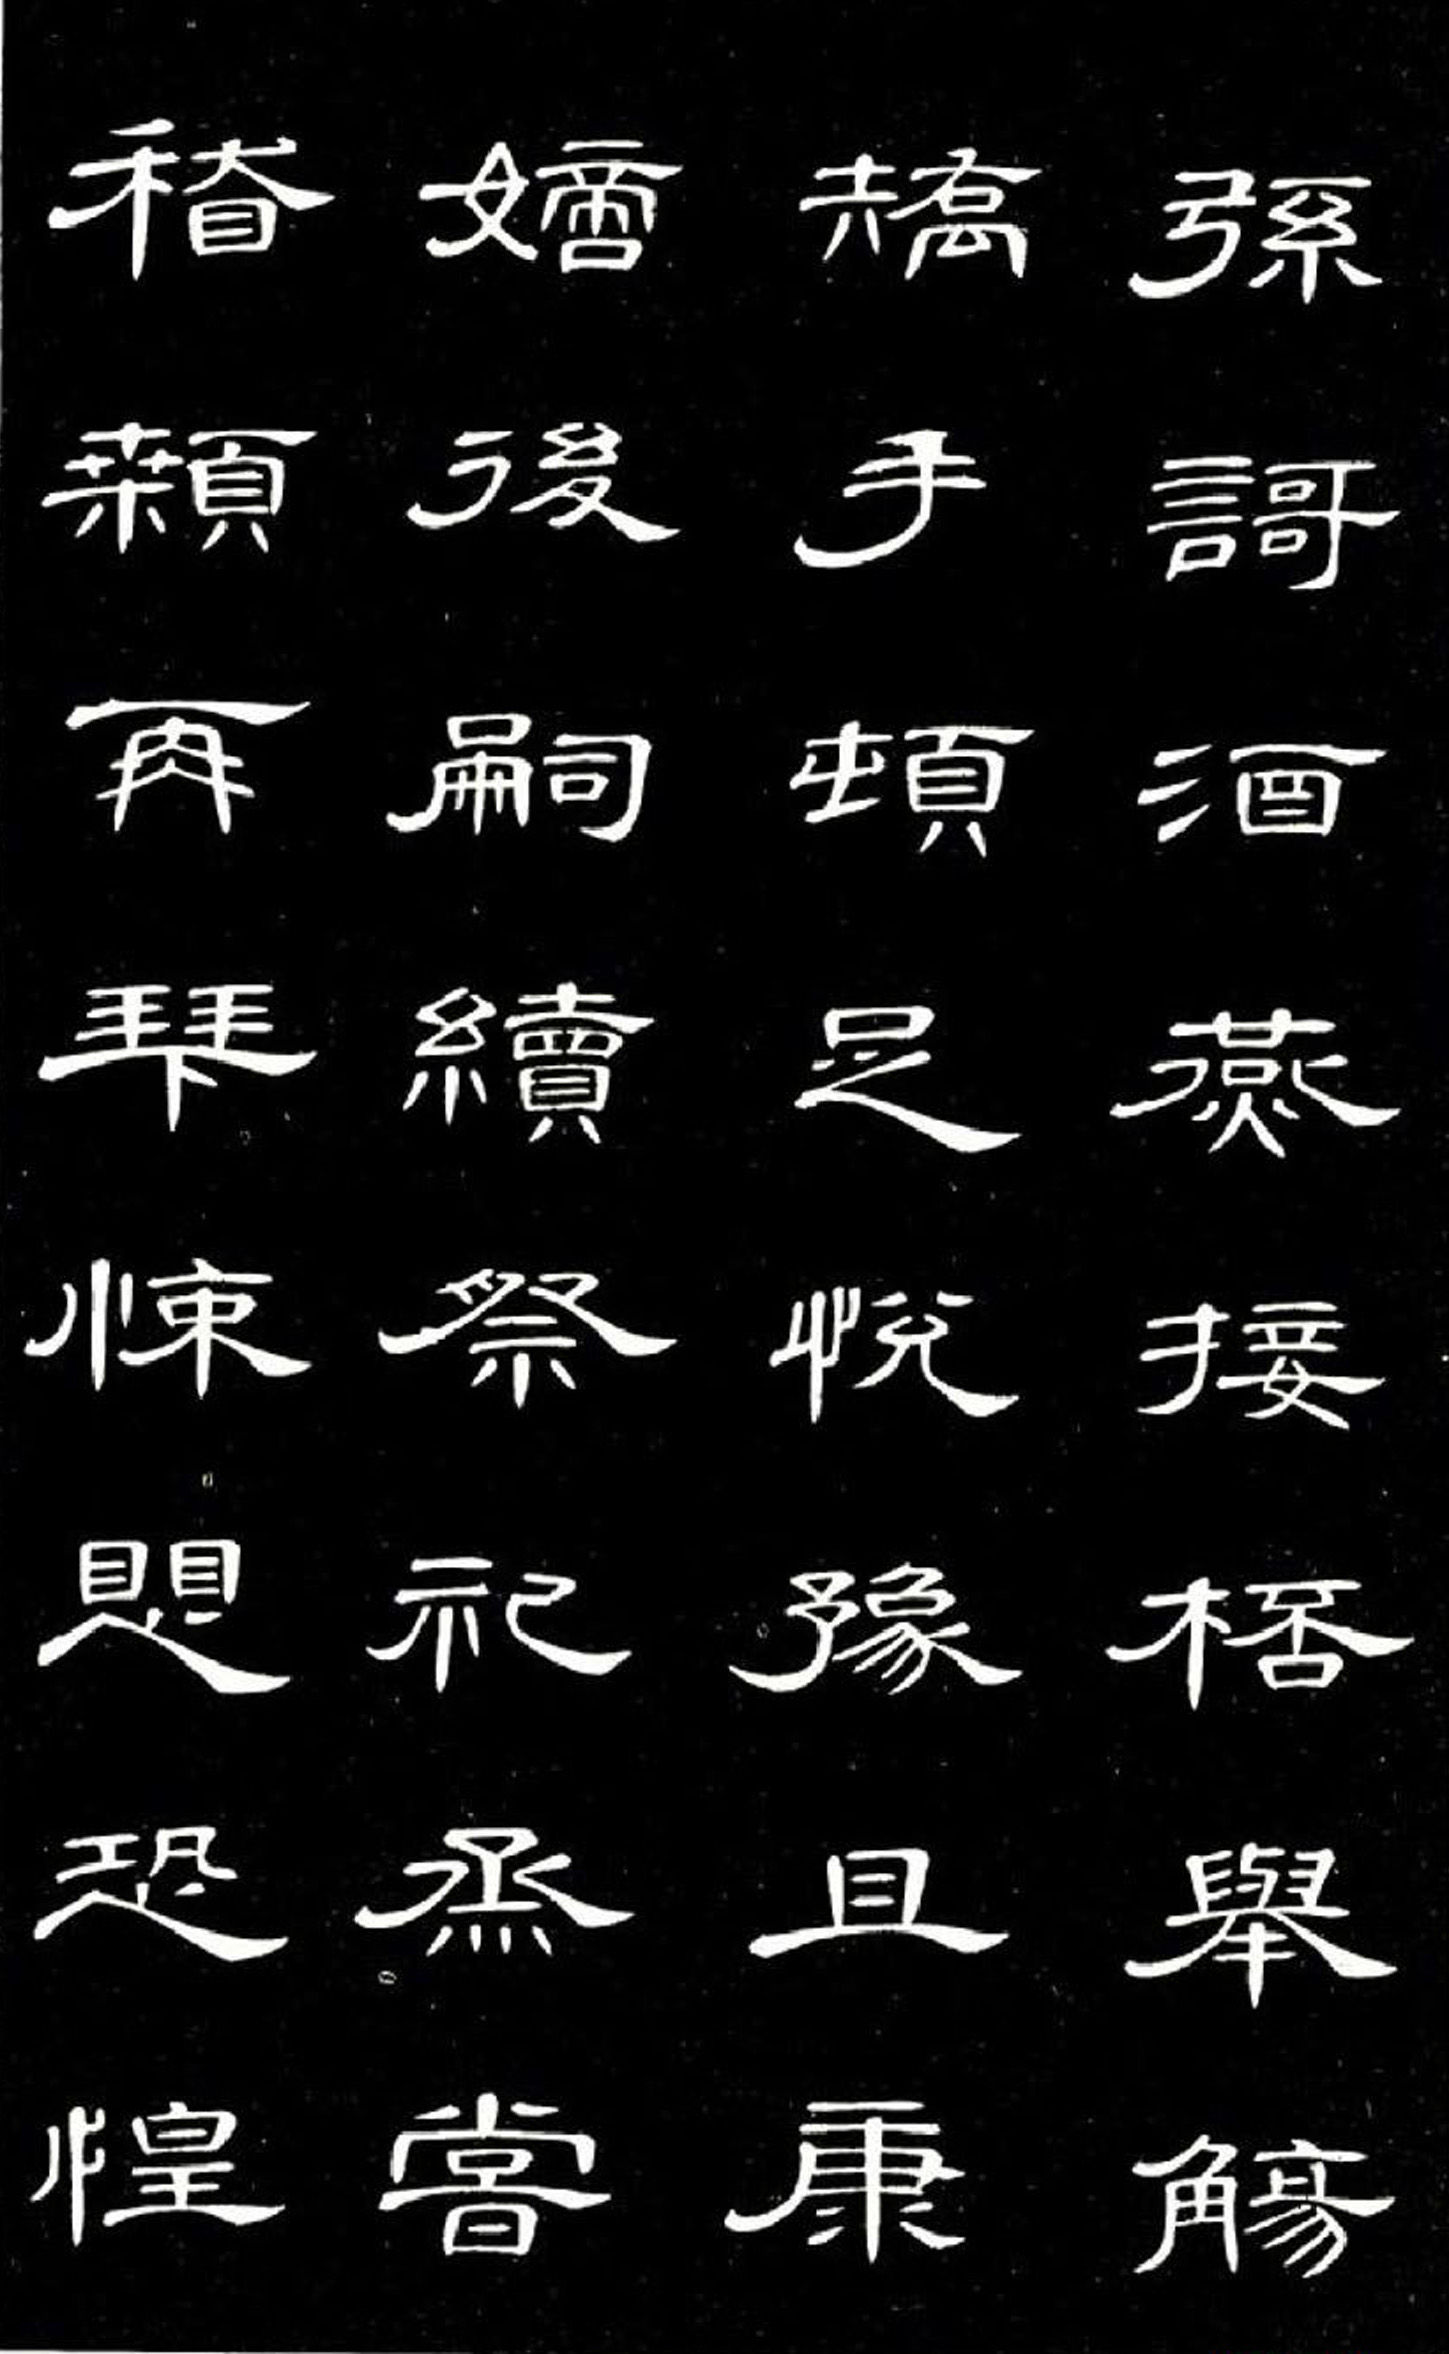 弦謌酒燕接桮舉觴
矯手頓足悅豫且康
嫡後嗣續祭祀烝嘗
稽顙再拜悚懼恐惶